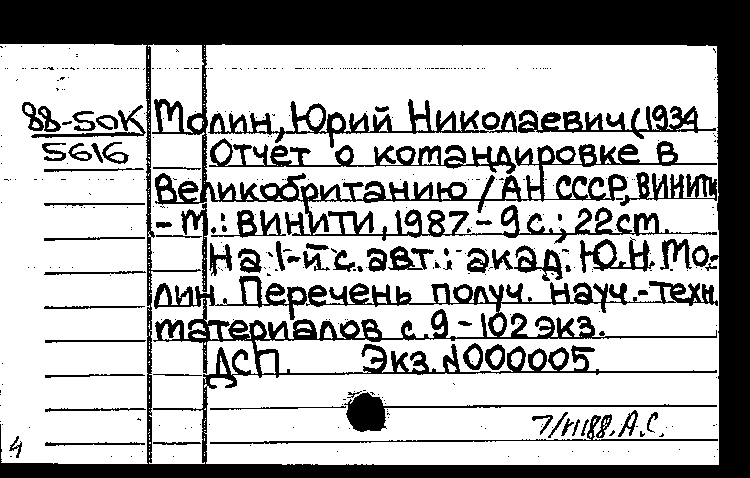 88-50К Молин, Юрий Николаевич (1934
5616 Отчет о командировке в
Великобританию / АН СССР, ВИНИТИ
- М.: ВИНИТИ, 1987.- 9 с.; 22 cm.
На 1-й с. авт.: акад. Ю.Н. Мо-
лин. Перечень получ. науч.-техн.
материалов с. 9 - 102 экз.
ДСП. Экз. N 000005.
А.С.
4